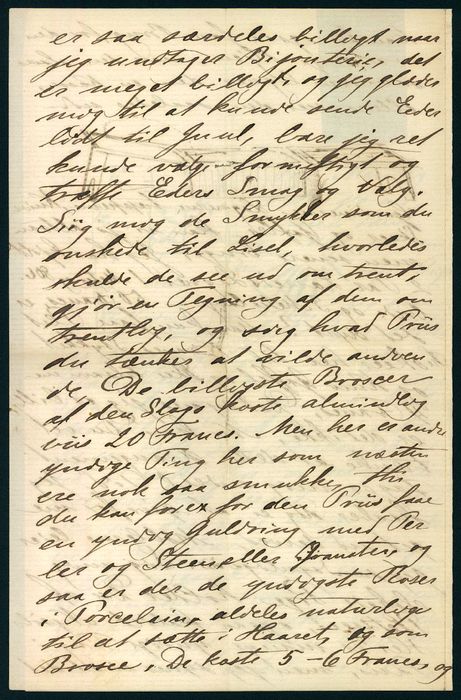 er saa særdeles billigt naar
jeg undtager Bijouterie, det
er meget billigt, og jeg glæder
mig til at kunde sende Eder
lidt til Juul, bare jeg ret
kunde vælge fornuftigt og
træffe Eders Smag og Valg.
Siig mig de Smykker som du
ønskede til Lisel, hvorledes
skulde de see ud omtrent,
gjør en Tegning af dem om
trentlig, og siig hvad Priis
du tænker at vilde anven
de, De billigste Broscer
af den Slags koste almindelig
viis 20 Francs. Men her er andre
yndige Ting her som næsten
ere nok saa smukke, thi
du kan for ex for den Priis faae
en yndig Guldring med Per
ler og Steen, eller Granater, og
saa er der de yndigste Roser
i Porcelain, aldeles naturlige
til at sætte i Haaret, og som
Brosce, De koste 5-6 Francs, og